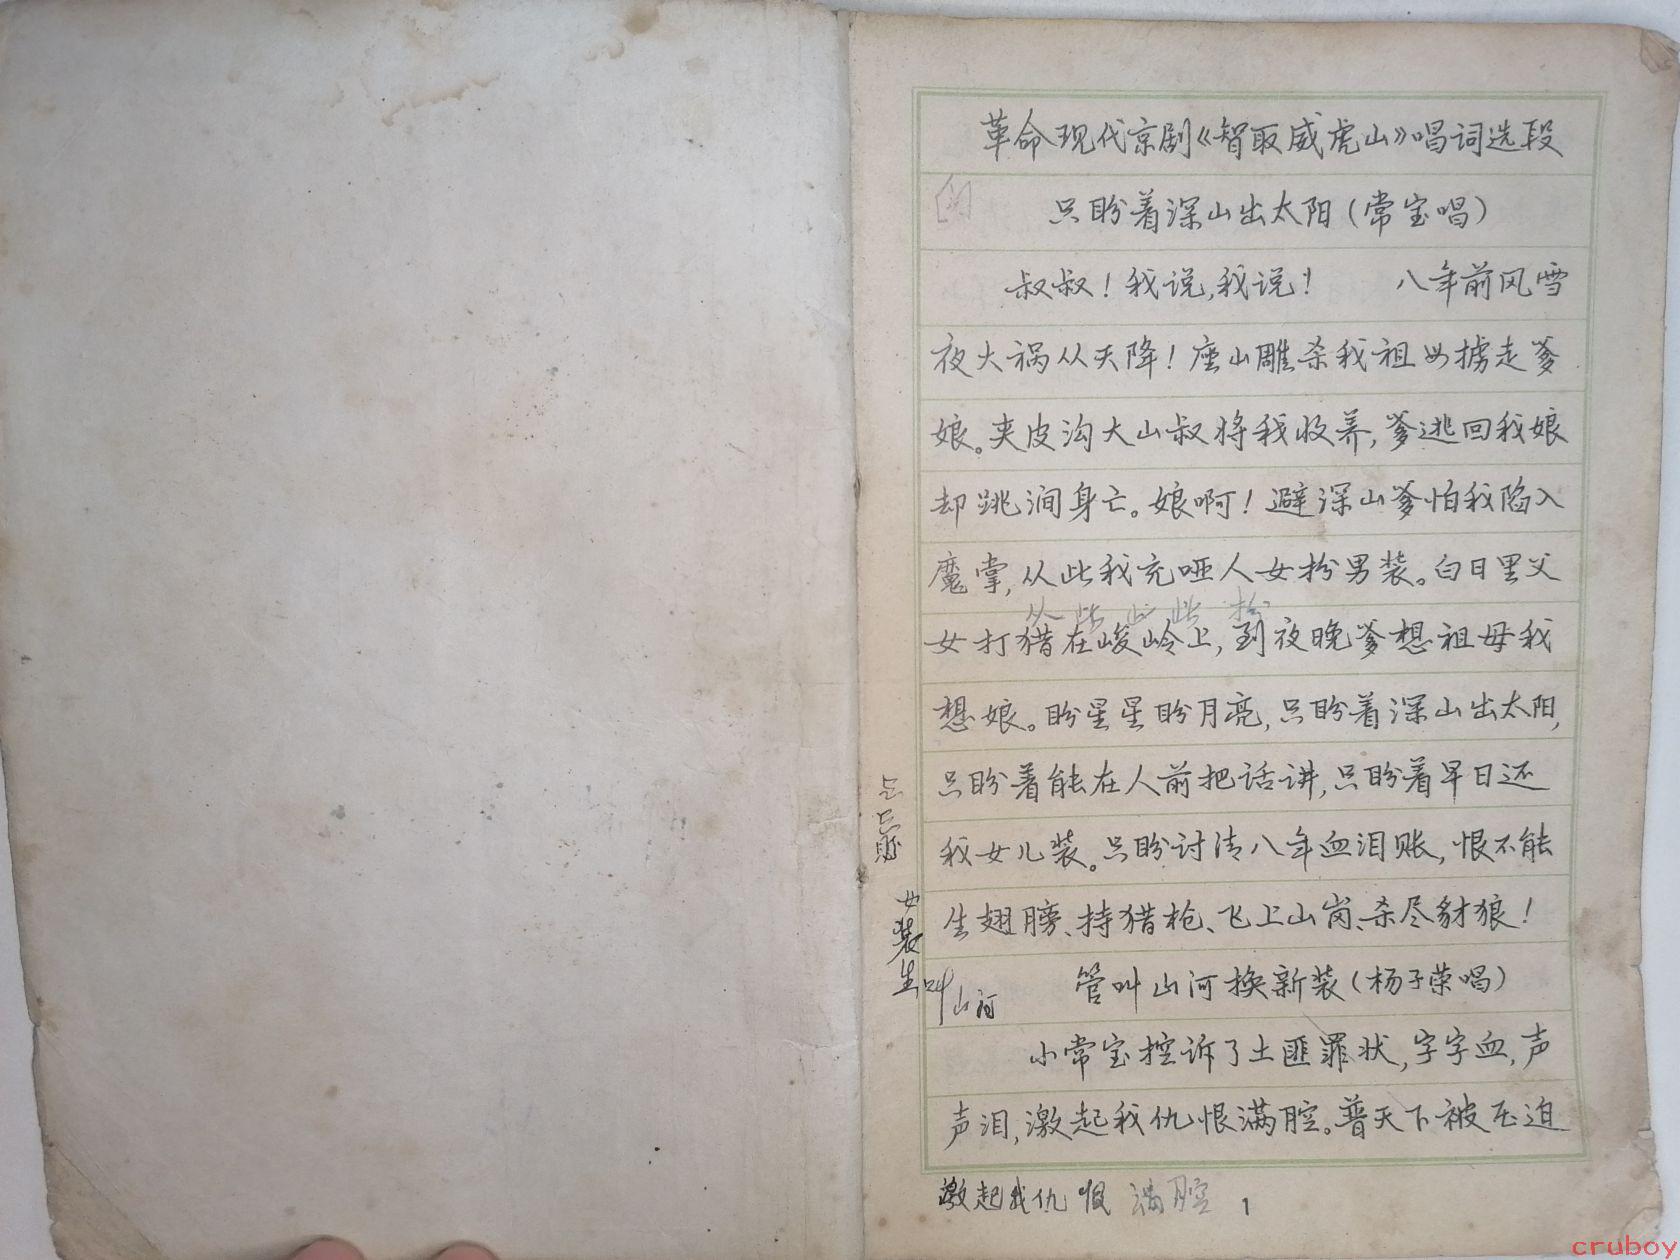 革命现代京剧《智取威虎山》唱词选段
只盼着深山出太阳(常宝唱)
叔叔!我说,我说! 八年前风雪
夜大祸从天降!座山雕杀我祖母掳走爹
娘。夹皮沟大山叔将我收养,爹逃回我娘
却跳涧身亡。娘啊!避深山爹怕我陷入
魔掌,从此我充哑人女扮男装。白日里父
从此 山 些 扮
女打猎在峻岭上,到夜晚爹想祖母我
想娘。盼星星盼月亮,只盼着深山出太阳,
只盼着能在人前把话讲,只盼着早日还
我女儿装。只盼讨清八年血泪账,恨不能
生翅膀、持猎枪、飞上山岗、杀尽豺狼!
管叫山河换新装(杨子荣唱)
小常宝控诉了土匪罪状,字字血,声
声泪,激起我仇恨满腔。普天下被压迫
女装生叫
山河
激起我仇恨满腔 1
cruboy